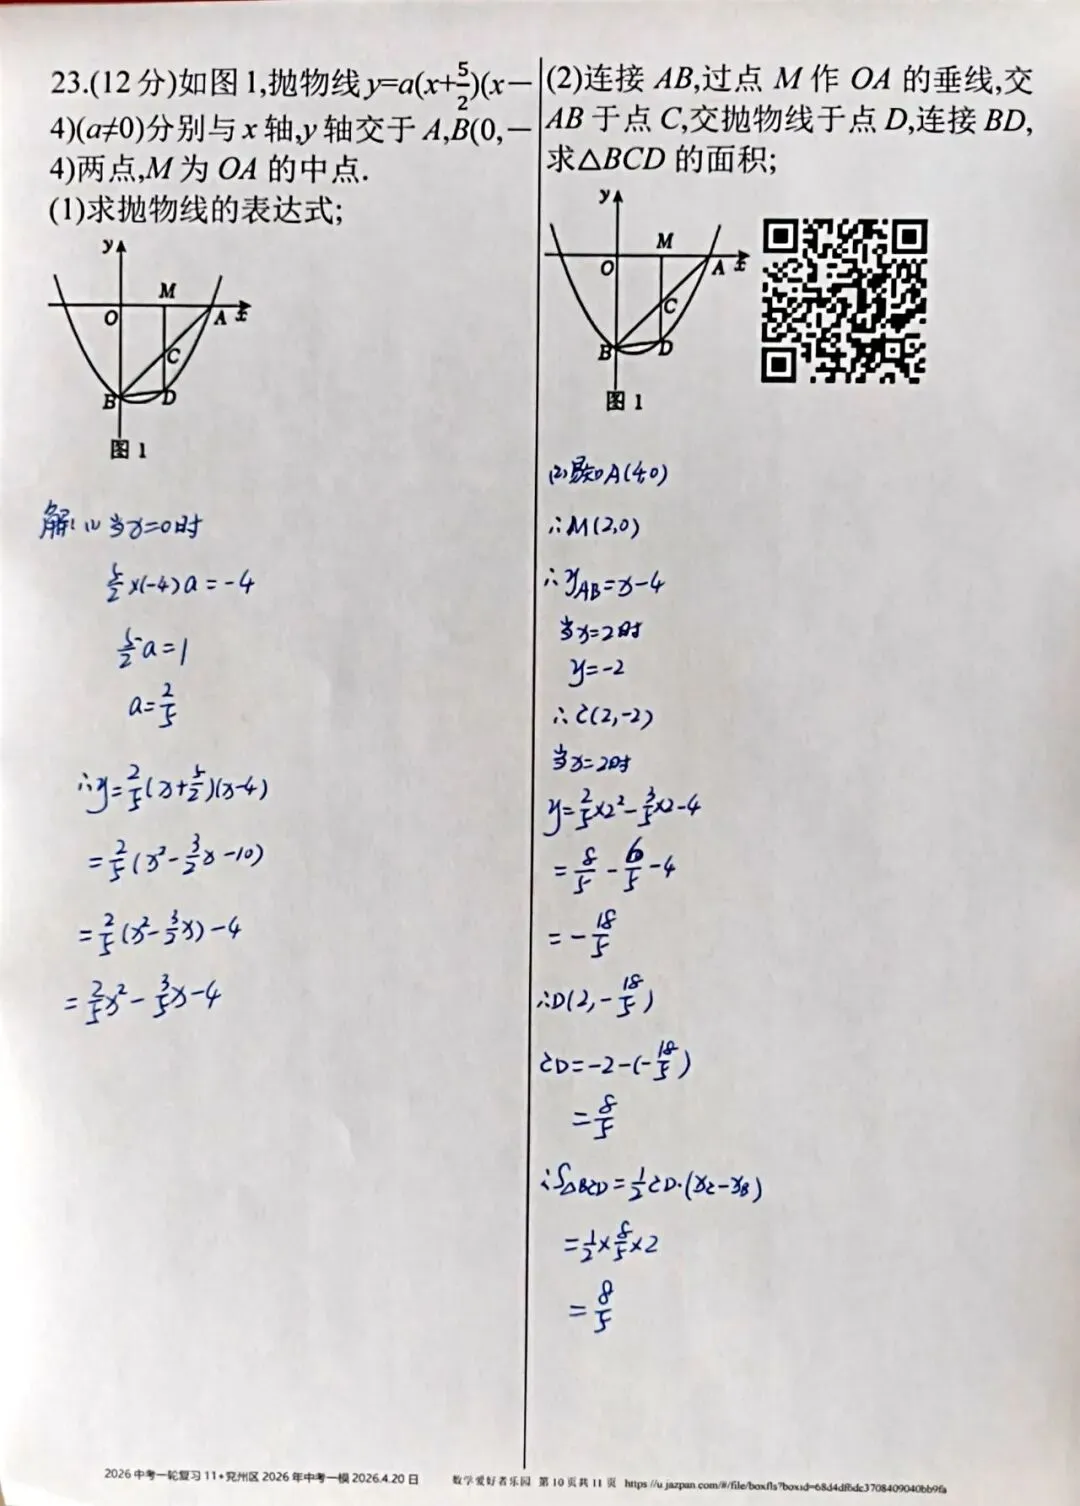 23.(12分)如图1,抛物线y=a(x+5/2)(x−
4)(a≠0)分别与x轴,y轴交于A,B(0,−
4)两点,M为OA的中点.
(1)求抛物线的表达式;
y
M
O
A
x
C
B
D
图1
解:(1)当x=0时
5/2×(-4)a=-4
5/2a=1
a=2/5
∴y=2/5(x+5/2)(x-4)
=2/5(x²-3/2x-10)
=2/5(x²-3/2x)-4
=2/5x²-3/5x-4
(2)连接AB,过点M作OA的垂线,交
AB于点C,交抛物线于点D,连接BD,
求△BCD的面积;
y
M
O
A
x
C
B
D
图1
(2)易知A(4,0)
∴M(2,0)
∴yAB=x-4
当x=2时
y=-2
∴C(2,-2)
当x=2时
y=2/5×2²-3/5×2-4
=8/5-6/5-4
=-18/5
∴D(2,-18/5)
CD=-2-(-18/5)
=8/5
∴S△BCD=1/2CD·(xC-xB)
=1/2×8/5×2
=8/5
2026中考一轮复习11+兖州区2026年中考一模2026.4.20日 数学爱好者乐园 第10页共11页 https://u.jazpan.com/#/file/boxfls?boxid=68d4dfbdc3708409040bb9fa